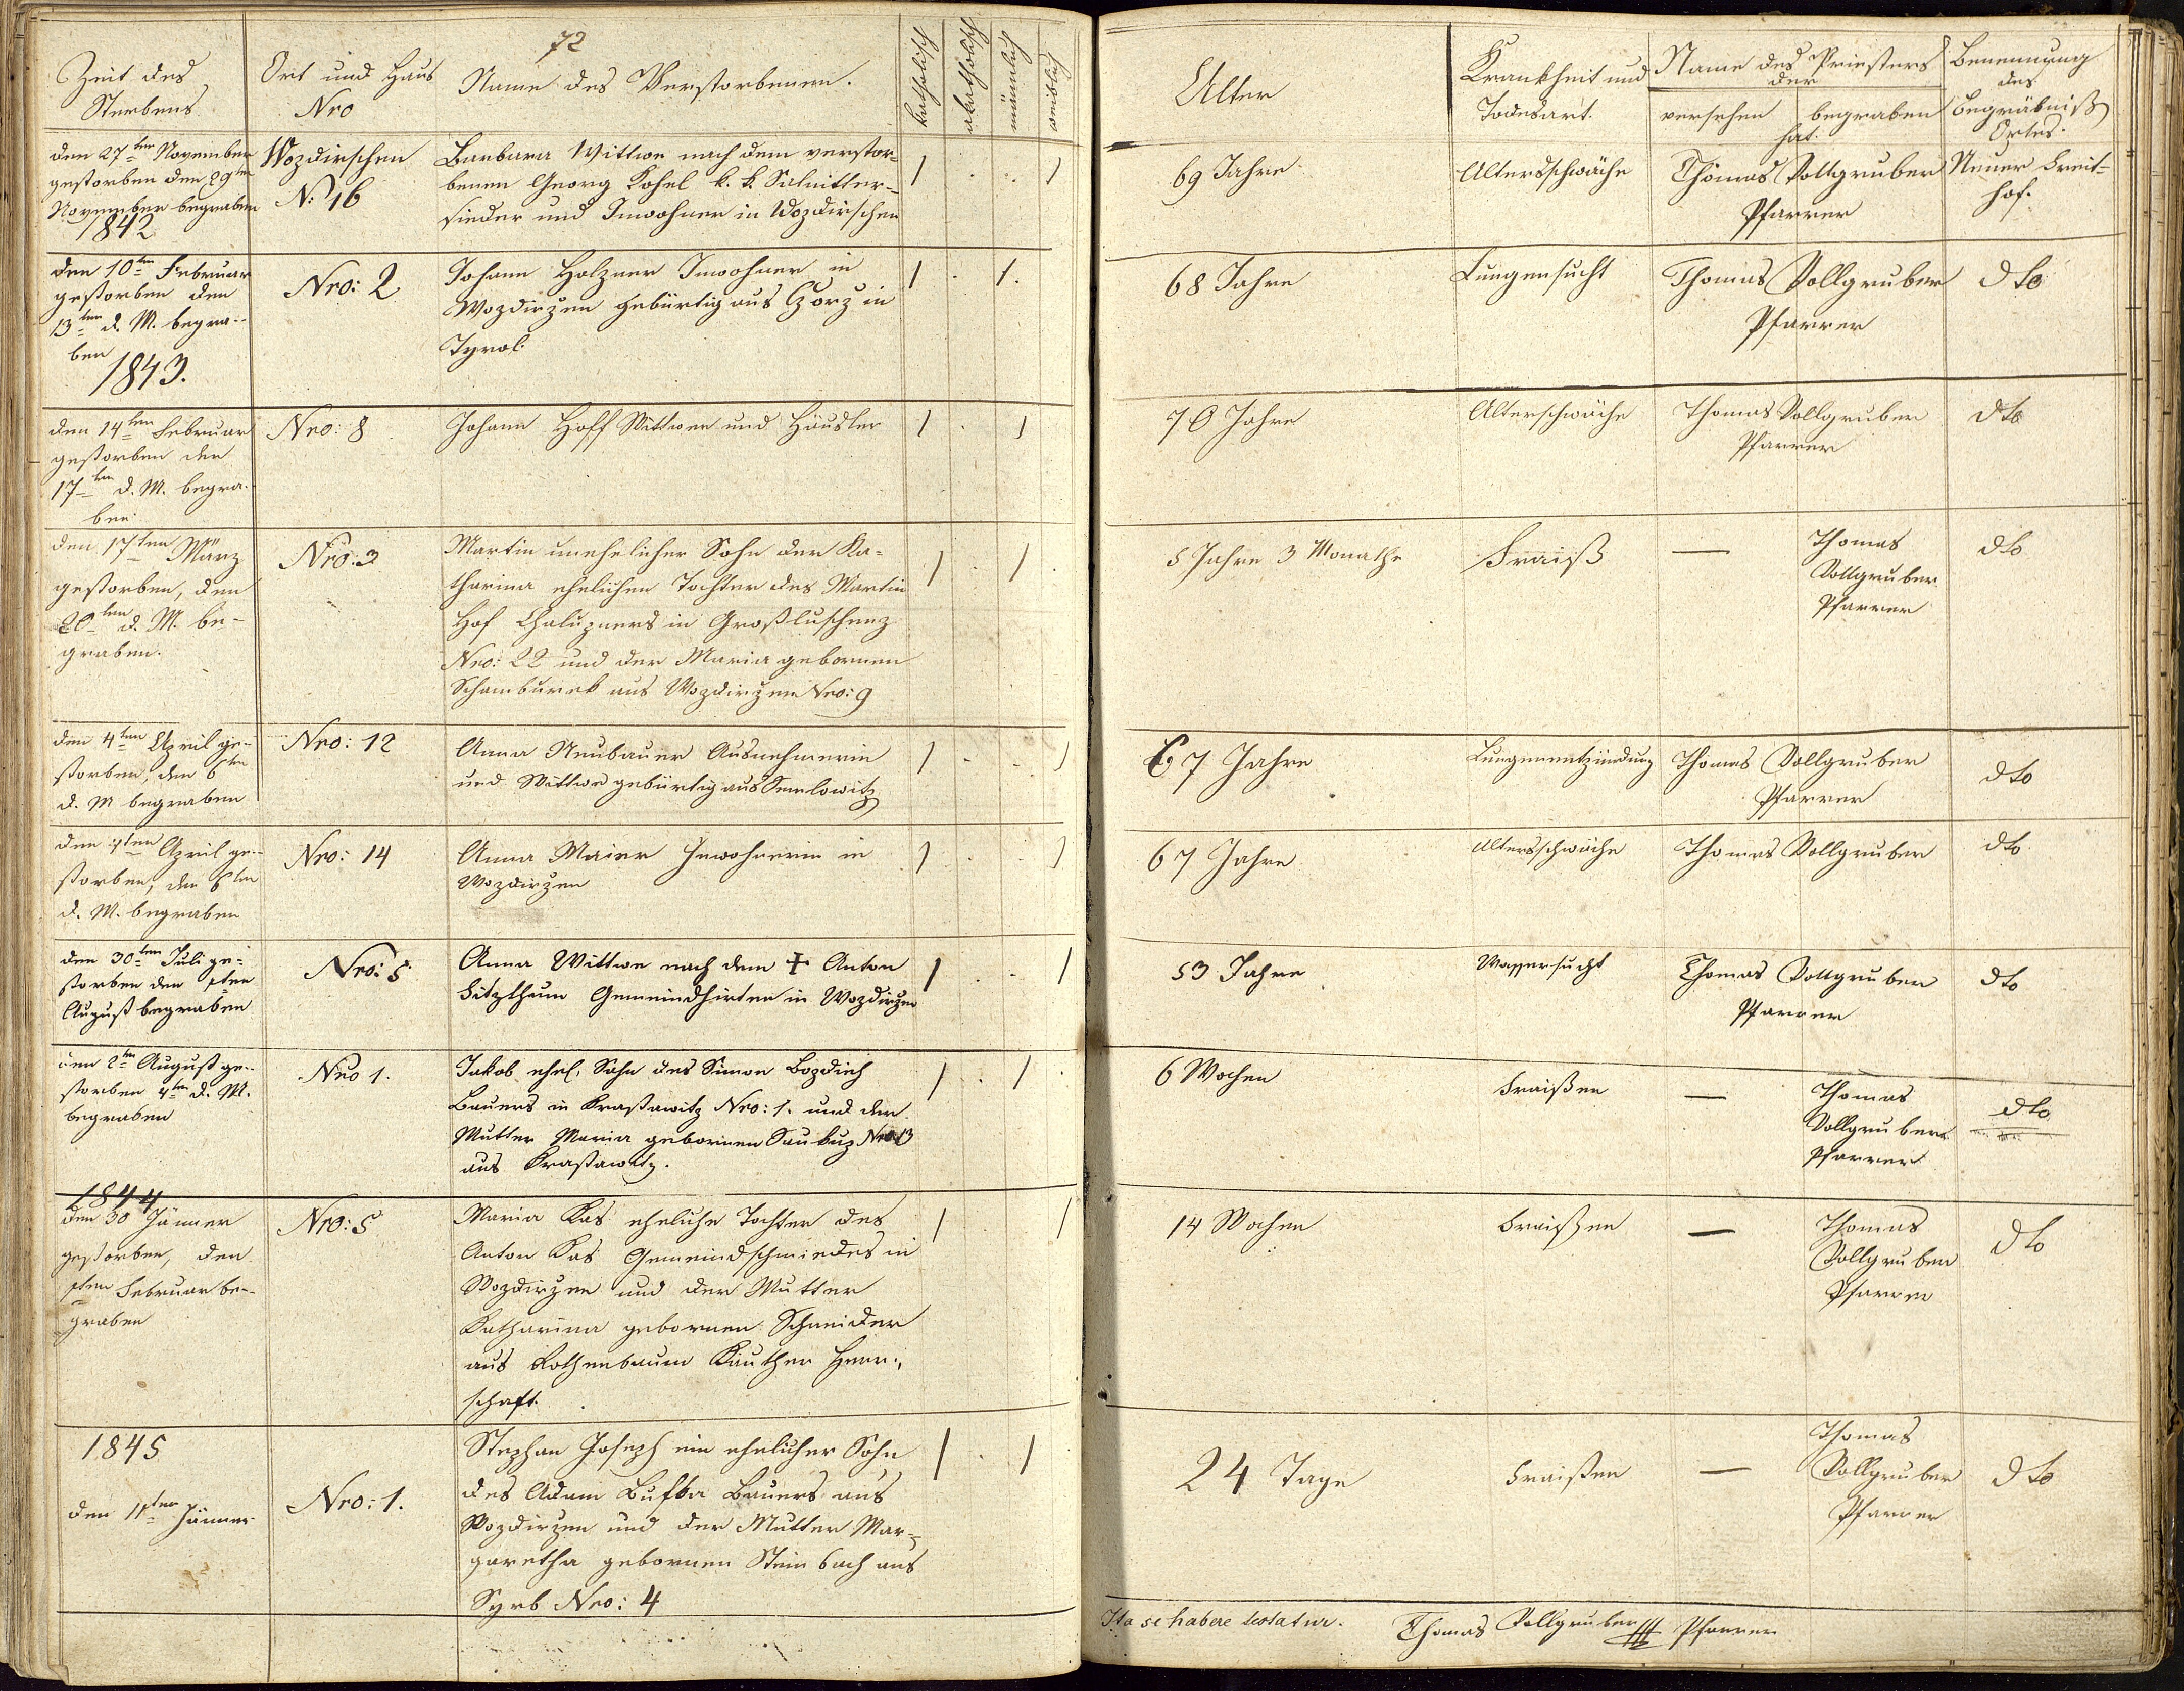 72
Zeit des
Sterbens
Ort und Haus
Nro
Name des Verstorbenen.
katholisch
akatholisch
männlich
weiblich
Alter
Krankheit und
Todesart.
Name des Priesters
der
versehen begraben
hat.
Benennung
des
Begräbniß
Ortes.
den 27ten November
gestorben den 29ten
November begraben
1842
Wozdirschen
N: 16
Barbara Wittwe nach dem verstor=
benen Georg Kohel k. k. Salnitter=
sieder und Inwohner in Wozdirschen
1 . . 1
69 Jahre
Altersschwäche
Thomas Vollgruber
Pfarrer
Neuer Freit=
hof.
den 10ten Februar
gestorben den
13ten d. M. begra=
ben
1843.
Nro: 2
Johann Holzner Inwohner in
Wozdirzen gebürtig aus in
Tyrol.
1 . 1.
68 Jahre
Lungensucht
Thomas Vollgruber
Pfarrer
dto
den 14ten Februar
gestorben den
17ten d. M. begra=
ben
Nro: 8
Johann Hoff Wittwer und Häusler
1 . 1
70 Jahre
Alterschwäche
Thomas Vollgruber
Pfarrer
dto
den 17ten März
gestorben, den
20ten d. M. be=
graben.
Nro: 3
Martin unehelicher Sohn der Ka=
tharina ehelichen Tochter des Martin
Hof Chaluzners in Großluschenz
Nro: 22 und der Maria gebornen
Schamburek aus Wozdirzen Nro: 9
1 . 1 .
5 Jahre 3 Monathe
Fraiß
—
Thomas
Vollgruber
Pfarrer
dto
den 4ten April ge=
storben, den 6ten
d. M begraben
Nro: 12
Anna Neubauer Ausnehmerin
und Wittwe gebürtig aus
1 . . 1
67 Jahre
Lungenentzündung
Thomas Vollgruber
Pfarrer
dto
den 4ten April ge=
storben, den 6ten
d. M. begraben
Nro: 14
Anna Maier Inwohnerin in
Wozdirzen
1 . . 1
67 Jahre
Altersschwäche
Thomas Vollgruber
dto
den 30ten Juli ge=
storben den 1ten
August begraben
Nro: 5
Anna Wittwe nach dem + Anton
Gemeindhirten in Wozdirzen
1 . . 1
53 Jahre
Wassersucht
Thomas Vollgruber
Pfarrer
dto
den 2ten August ge=
storben 4ten d. M.
begraben
Nro 1.
Jakob ehel. Sohn des Simon Bozdiech
Bauers in Kraßawitz Nro: 1. und der
Mutter Maria gebornen Nro 13
aus Kraßawitz.
1 . 1 .
6 Wochen
Fraißen
—
Thomas
Vollgruber
Pfarrer
dto
1844
den 30 Jänner
gestorben, den
1ten Februar be=
graben
Nro: 5
Maria Kas eheliche Tochter des
Anton Kas Gemeindschmiedes in
Wozdirzen und der Mutter
Katharina gebornen Schneider
aus Rothenbaum Kauther Herr=
schaft.
1 . 1
14 Wochen
Fraißen
—
Thomas
Vollgruber
Pfarrer
dto
1845
den 11ten Jänner
Nro: 1.
Stephan Joseph ein ehelicher Sohn
des Adam Bufka Bauers aus
Wozdirzen und der Mutter Mar=
garetha gebornen Steinbach aus
Syrb Nro: 4
1 . 1 .
24 Tage
Fraißen
—
Thomas
Vollgruber
Pfarrer
dto
Ita se habere testatur. Thomas Vollgruber Pfarrer